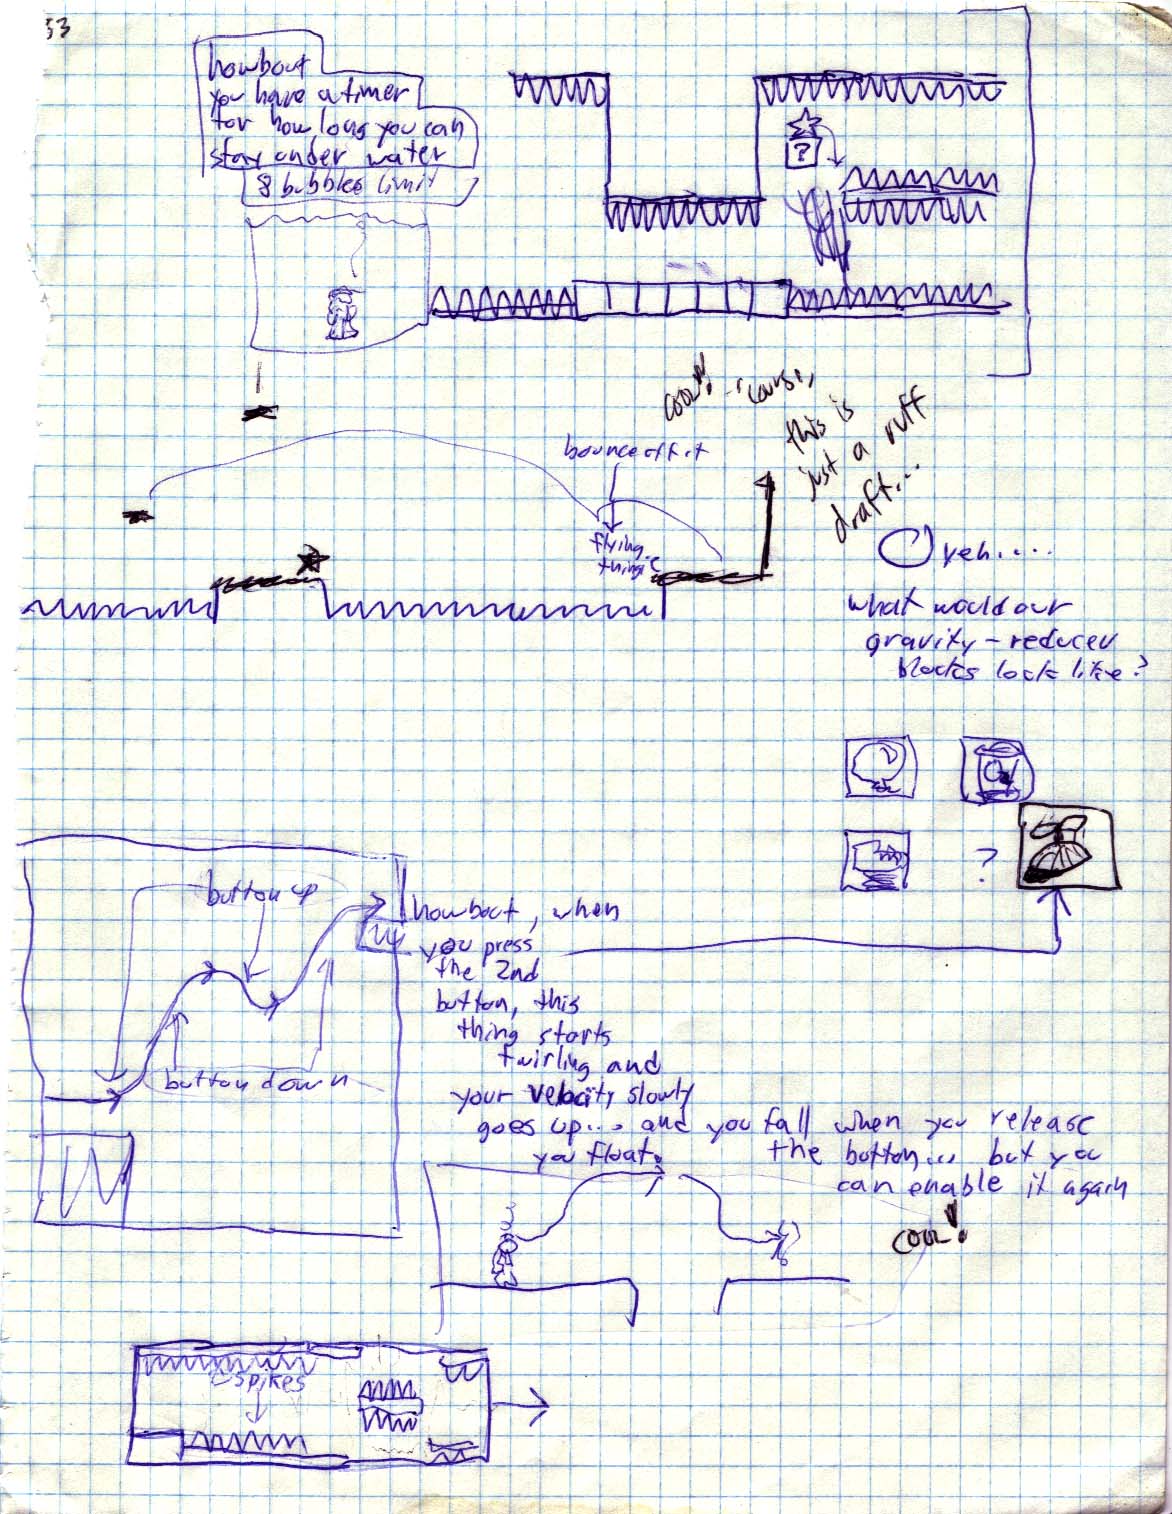 33
howbout
you have a timer
for how long you can
stay under water
8 bubbles limit
?
cool! - 'cause,
this is
just a ruff
draft...
bounce off it
flying
thingie
O yeh....
what would our
gravity-reducer
blocks look like?
?
button up
button down
howbout, when
you press
the 2nd
button, this
thing starts
twirling and
your velocity slowly
goes up... and you fall when you release
you float.
the button... but you
can enable it again
cool!
spikes